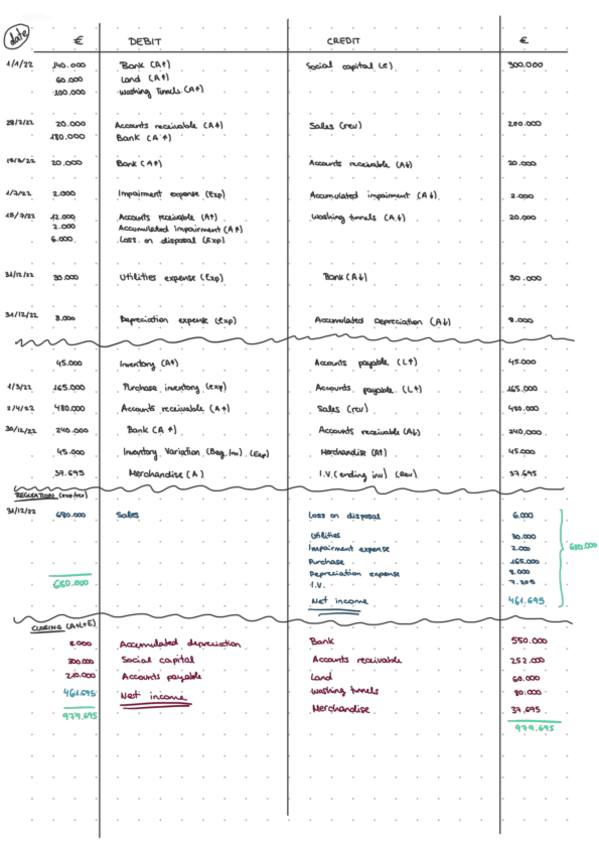 date € DEBIT CREDIT €
1/1/22 140.000 Bank (A↑) Social capital (E) 300.000
60.000 Land (A↑)
100.000 Washing Tunnels (A↑)
28/2/22 20.000 Accounts receivable (A↑) Sales (rev) 200.000
180.000 Bank (A↑)
20.000 Bank (A↑) Accounts receivable (A↓) 20.000
1/7/22 2.000 Impairment expense (Exp) Accumulated impairment (A↓) 2.000
12.000 Accounts receivable (A↑) Washing tunnels (A↓) 20.000
2.000 Accumulated Impairment (A↑)
6.000 Loss on disposal (Exp)
31/12/22 30.000 Utilities expense (Exp) Bank (A↓) 30.000
31/12/22 8.000 Depreciation expense (Exp) Accumulated Depreciation (A↓) 8.000
45.000 Inventory (A↑) Accounts payable (L↑) 45.000
1/3/22 165.000 Purchase inventory (exp) Accounts payable (L↑) 165.000
2/4/22 480.000 Accounts receivable (A↑) Sales (rev) 480.000
30/12/22 240.000 Bank (A↑) Accounts receivable (A↓) 240.000
45.000 Inventory Variation (Beg. Inv) (Exp) Merchandise (A↑) 45.000
37.695 Merchandise (A) I.V. (ending inv) (Rev) 37.695
REGULATION (exp/rev)
31/12/22 680.000 Sales Loss on disposal 6.000
Utilities 30.000
Impairment expense 2.000 680.000
Purchase 165.000
680.000 Depreciation expense 8.000
I.V. 7.305
Net income 461.695
CLOSING (A+L+E)
8.000 Accumulated depreciation Bank 550.000
300.000 Social capital Accounts receivable 252.000
210.000 Accounts payable Land 60.000
461.695 Net income Washing tunnels 80.000
979.695 Merchandise 37.695
979.695